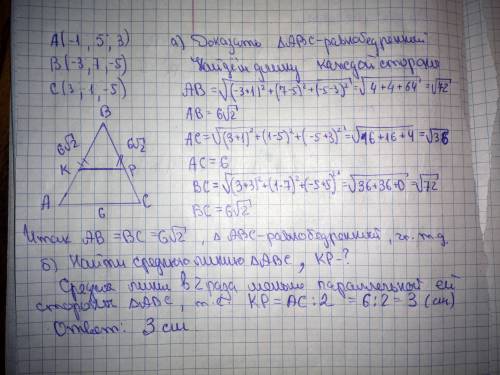 A(-1, 5, 3)
B(-3, 7, -5)
C(3, 1, -5)
B
6√2
6√2
K
P
A
C
6
а) Доказать ΔABC-равнобедренный
Найдём длину каждой стороны
AB = √((-3+1)²+(7-5)²+(-5-3)²) = √(4+4+64) = √72
AB = 6√2
AC = √((3+1)²+(1-5)²+(-5+3)²) = √(16+16+4) = √36
AC = 6
BC = √((3+3)²+(1-7)²+(-5+5)²) = √(36+36+0) = √72
BC = 6√2
Итак AB = BC = 6√2, ΔABC-равнобедренный, ч. т. д.
б) Найти среднюю линию ΔABC, KP-?
Средняя линия в 2 раза меньше параллельной ей
стороны ΔABC, т. е KP = AC : 2 = 6 : 2 = 3 (см)
Ответ: 3 см